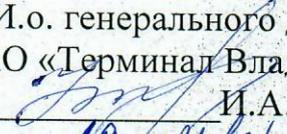 И.о. генерального
О «Терминал Вла
И.А.